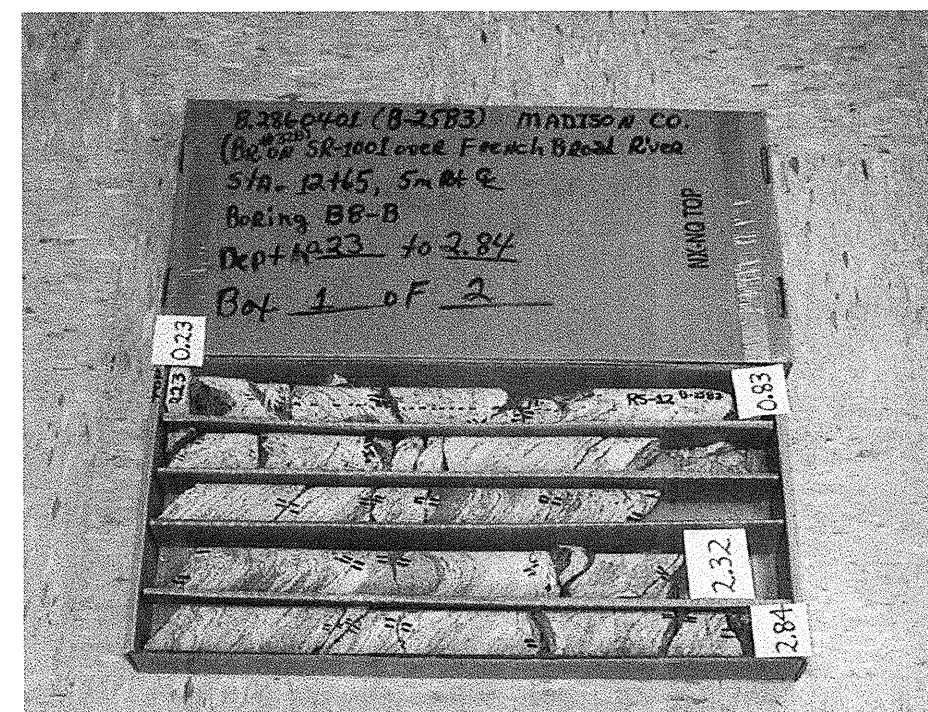 8.2860401 (B-2583) MADISON CO.
(BR ON SR-1001 over French Broad River
Sta. 12+65, 5m Rt ℄
Boring B8-B
Depth 0.23 to 2.84
Box 1 of 2
NX-NO TOP
0.23
0.23
RS-12
0.83
2.32
2.84